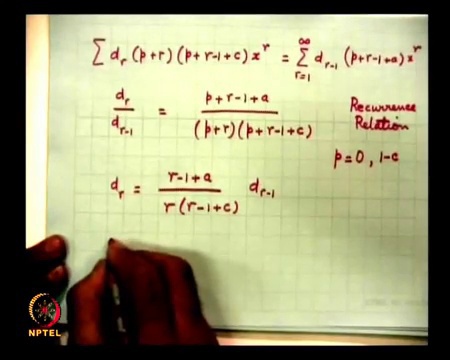 ∑ d_r (p+r) (p+r-1+c) x^r = ∑_{r=1}^{∞} d_{r-1} (p+r-1+a) x^r
d_r / d_{r-1} = (p+r-1+a) / ((p+r)(p+r-1+c))
Recurrence
Relation
p=0, 1-c
d_r = (r-1+a) / (r(r-1+c)) d_{r-1}
NPTEL